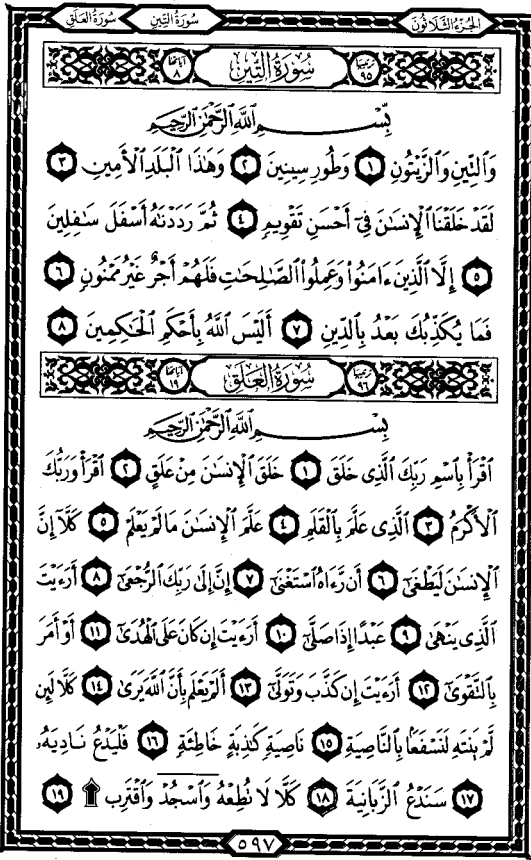 الجزء الثلاثون سورة التين سورة العلق
ترتيبها ٩٥ سورة التين آياتها ٨
بِسْمِ ٱللَّهِ ٱلرَّحْمَٰنِ ٱلرَّحِيمِ
وَٱلتِّينِ وَٱلزَّيْتُونِ ١ وَطُورِ سِينِينَ ٢ وَهَٰذَا ٱلْبَلَدِ ٱلْأَمِينِ ٣
لَقَدْ خَلَقْنَا ٱلْإِنسَٰنَ فِىٓ أَحْسَنِ تَقْوِيمٍ ٤ ثُمَّ رَدَدْنَٰهُ أَسْفَلَ سَٰفِلِينَ
٥ إِلَّا ٱلَّذِينَ ءَامَنُوا۟ وَعَمِلُوا۟ ٱلصَّٰلِحَٰتِ فَلَهُمْ أَجْرٌ غَيْرُ مَمْنُونٍ ٦
فَمَا يُكَذِّبُكَ بَعْدُ بِٱلدِّينِ ٧ أَلَيْسَ ٱللَّهُ بِأَحْكَمِ ٱلْحَٰكِمِينَ ٨
ترتيبها ٩٦ سورة العلق آياتها ١٩
بِسْمِ ٱللَّهِ ٱلرَّحْمَٰنِ ٱلرَّحِيمِ
ٱقْرَأْ بِٱسْمِ رَبِّكَ ٱلَّذِى خَلَقَ ١ خَلَقَ ٱلْإِنسَٰنَ مِنْ عَلَقٍ ٢ ٱقْرَأْ وَرَبُّكَ
ٱلْأَكْرَمُ ٣ ٱلَّذِى عَلَّمَ بِٱلْقَلَمِ ٤ عَلَّمَ ٱلْإِنسَٰنَ مَا لَمْ يَعْلَمْ ٥ كَلَّآ إِنَّ
ٱلْإِنسَٰنَ لَيَطْغَىٰٓ ٦ أَن رَّءَاهُ ٱسْتَغْنَىٰٓ ٧ إِنَّ إِلَىٰ رَبِّكَ ٱلرُّجْعَىٰٓ ٨ أَرَءَيْتَ
ٱلَّذِى يَنْهَىٰ ٩ عَبْدًا إِذَا صَلَّىٰٓ ١٠ أَرَءَيْتَ إِن كَانَ عَلَى ٱلْهُدَىٰٓ ١١ أَوْ أَمَرَ
بِٱلتَّقْوَىٰٓ ١٢ أَرَءَيْتَ إِن كَذَّبَ وَتَوَلَّىٰٓ ١٣ أَلَمْ يَعْلَم بِأَنَّ ٱللَّهَ يَرَىٰ ١٤ كَلَّا لَئِن
لَّمْ يَنتَهِ لَنَسْفَعًۢا بِٱلنَّاصِيَةِ ١٥ نَاصِيَةٍ كَٰذِبَةٍ خَاطِئَةٍ ١٦ فَلْيَدْعُ نَادِيَهُۥ
١٧ سَنَدْعُ ٱلزَّبَانِيَةَ ١٨ كَلَّا لَا تُطِعْهُ وَٱسْجُدْ وَٱقْتَرِب ۩ ١٩
٥٩٧